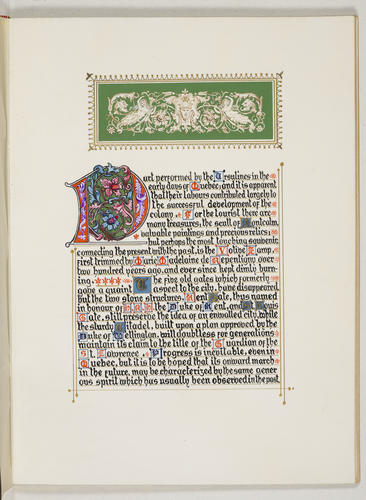 Part performed by the Ursulines in the
early days of Quebec; and it is apparent
that their labours contributed largely to
the successful development of the
colony. For the tourist there are
many treasures; the scull of Montcalm,
valuable paintings and precious relics;
but perhaps the most touching souvenir,
connecting the present with the past, is the Votive Lamp,
first trimmed by Marie Madelaine de Repentigny over
two hundred years ago, and ever since kept dimly burn-
ing. The five old gates which formerly
gave a quaint aspect to the city, have disappeared
but the two stone structures, Kent Gate, thus named
in honour of H.R.H. the Duke of Kent, and St. Louis
Gate, still preserve the idea of an enwalled city, while
the sturdy Citadel, built upon a plan approved by the
Duke of Wellington, will doubtless for generations
maintain its claim to the title of the Guardian of the
St. Lawrence. Progress is inevitable, even in
Quebec, but it is to be hoped that its onward march
in the future, may be characterized by the same gener-
ous spirit which has usually been observed in the past.